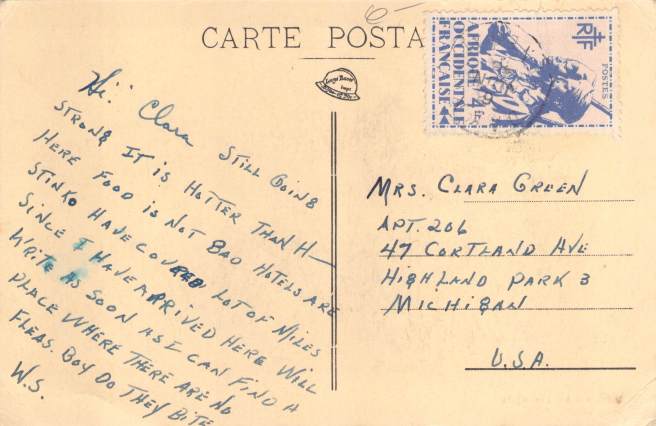 6-
CARTE POSTA
Hi! Clara
STILL GOING
STRONG IT IS HOTTER THAN H—
HERE FOOD IS NOT BAD HOTELS ARE
STINKO HAVE COVERED LOT OF MILES
SINCE I HAVE ARRIVED HERE WILL
WRITE AS SOON AS I CAN FIND A
PLACE WHERE THERE ARE NO
FLEAS. BOY DO THEY BITE
W.S.
RF
POSTES
AFRIQUE
OCCIDENTALE
FRANÇAISE
4F
MRS. CLARA GREEN
APT. 206
47 CORTLAND AVE
HIGHLAND PARK 3
MICHIGAN
U.S.A.